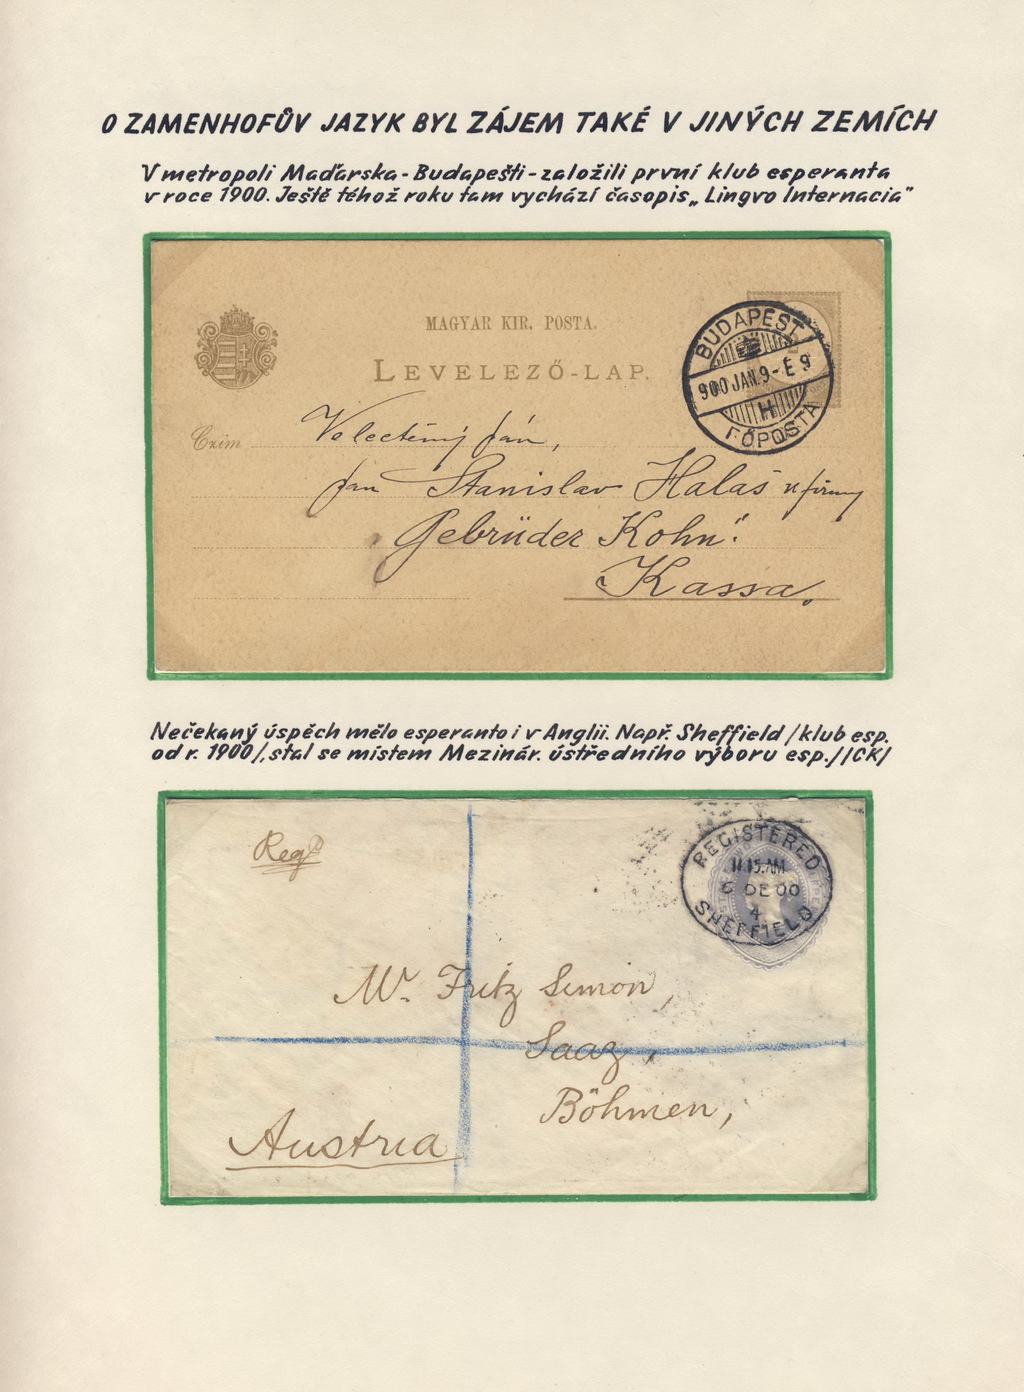 O ZAMENHOFŮV JAZYK BYL ZÁJEM TAKÉ V JINÝCH ZEMÍCH
V metropoli Maďarska - Budapešti - založili první klub esperanta
v roce 1900. Ještě téhož roku tam vychází časopis „Lingvo Internacia"
MAGYAR KIR. POSTA.
LEVELEZŐ-LAP.
BUDAPEST
900 JAN. 9 - É 9
H
FŐPOSTA
Czim
Velectěný pán,
pan Stanislav Halaš u firmy
Gebrüder Kohn"
Kassa.
Nečekaný úspěch mělo esperanto i v Anglii. Např. Sheffield /klub esp.
od r. 1900/, stal se místem Mezinár. ústředního výboru esp./ICK/
Regd
REGISTERED
11.15.AM
DE 00
4
SHEFFIELD
Mr. Fritz Simon,
Saaz,
Böhmen,
Austria